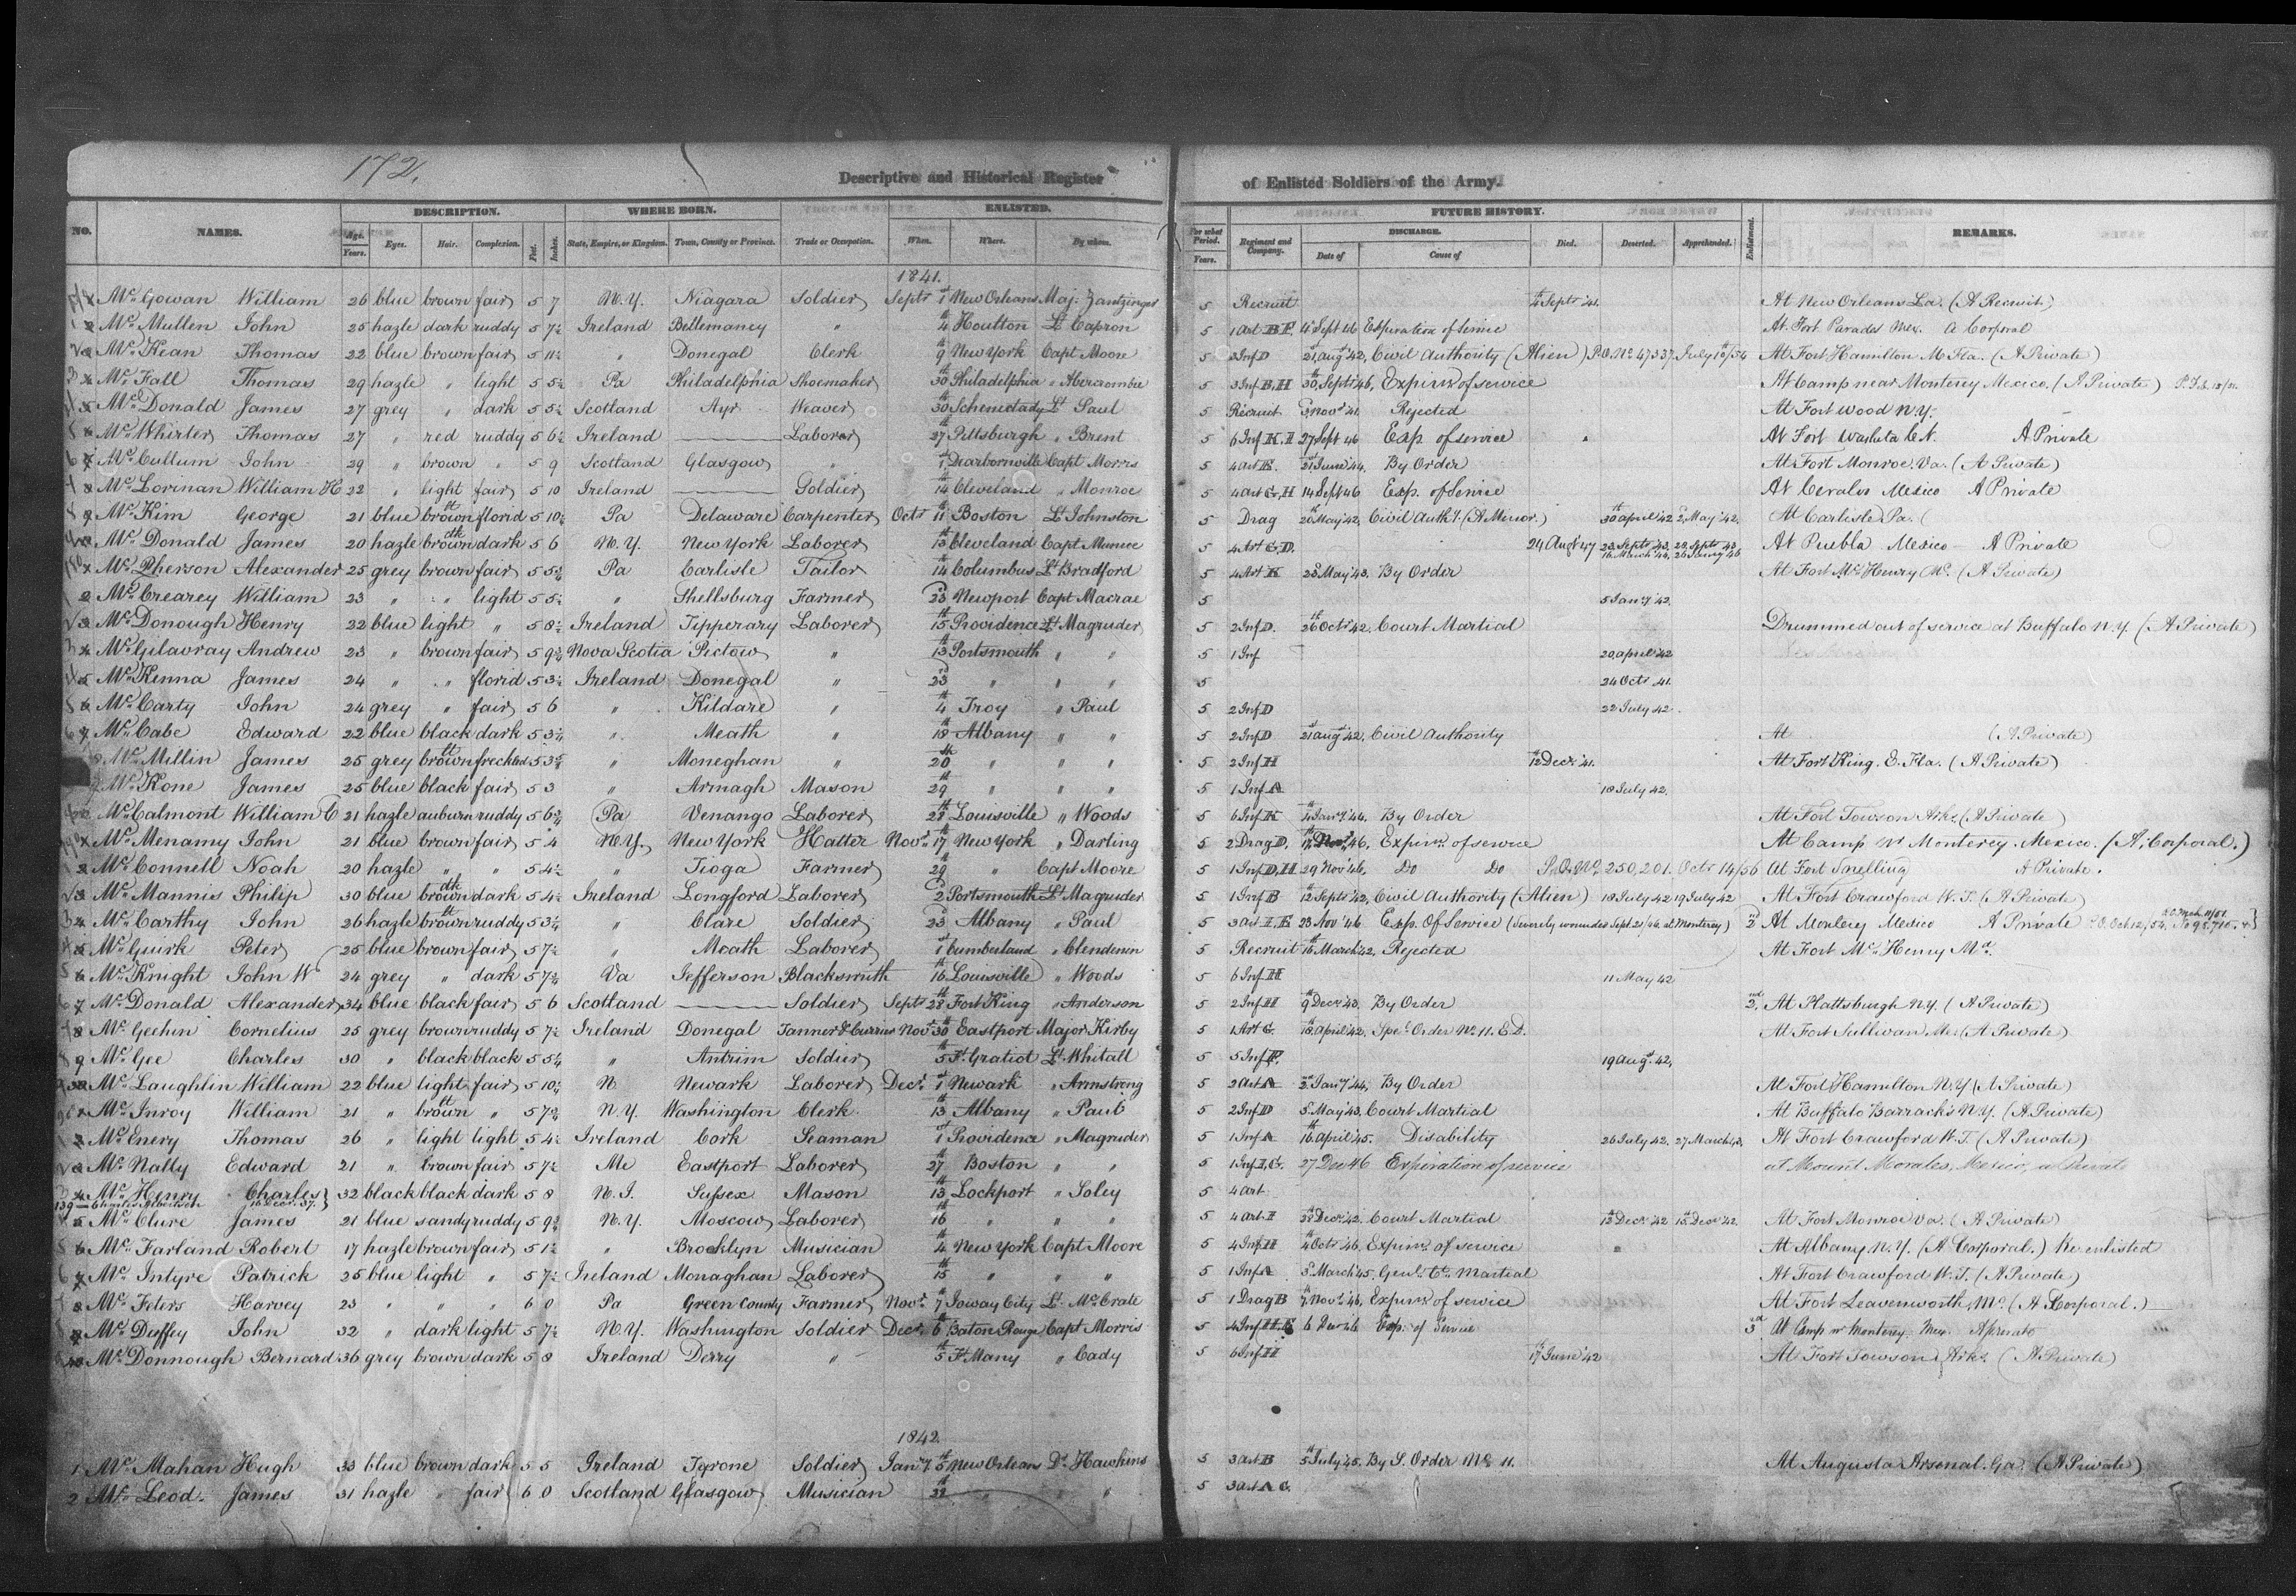 172.
Descriptive and Historical Register of Enlisted Soldiers of the Army.
NO. NAMES. DESCRIPTION. WHERE BORN. ENLISTED. FUTURE HISTORY. REMARKS.
Age. Eyes. Hair. Complexion. Feet. Inches. State, Empire, or Kingdom. Town, County or Province. Trade or Occupation. When. Where. By whom. For what Period. Regiment and Company. DISCHARGE. Died. Deserted. Apprehended. Enlistment.
Years. Years. Date of Cause of
1841.
Mc Gowan William 26 blue brown fair 5 7 N.Y. Niagara Soldier Septr 1st New Orleans Maj. Zantzinger 5 Recruit 4th Septr '41. At New Orleans La. (A Recruit)
Mc Mullen John 25 hazle dark ruddy 5 7½ Ireland " 4th Houlton Lt Capron 5 1 Art B.F. 4 Sept 46 Expiration of Service At Fort Parades Mex. a Corporal
Mc Kean Thomas 22 blue brown fair 5 11½ " Donegal Clerk 9th New York Capt Moore 5 2 Inf D 21st Augt '42, Civil Authority (Alien) P.O. No 47337 July 18/54 At Fort Hamilton (A Private)
Mc Fall Thomas 29 hazle " light 5 5½ Pa Philadelphia Shoemaker 30th Philadelphia " Abercrombie 5 3 Inf B,H 30th Septr 46, Expirn of service At Camp near Monterey Mexico. (A Private)
Mc Donald James 27 grey " dark 5 5½ Scotland Ayr Weaver 30th Schenectady Lt Paul 5 Recruit Novr '41 Rejected At Fort Wood N.Y.
Mc Whirter Thomas 27 " red ruddy 5 6½ Ireland Laborer 27 Pittsburgh " Brent 5 6 Inf K.I 27 Sept 46 Exp of service At Fort Washita C.N. A Private
Mc Cullum John 29 " brown " 5 9 Scotland Glasgow " 1st Dearbornville Capt Morris 5 4 Art E. 21st June '44. By Order At Fort Monroe. Va. (A Private)
Mc Lorinan William H 22 " light fair 5 10 Ireland Soldier 14th Cleveland " Monroe 5 4 Art G,H 14 Sept 46 Exp. of Service At Cevalvo Mexico A Private
Mc Kim George 21 blue lt brown florid 5 10½ Pa Delaware Carpenter Octr 11th Boston Lt Johnston 5 Drag 20 May '42, Civil Auth'y. (A Minor.) 30th April '42 2d May '42. At Carlisle Pa. (
Mc Donald James 20 hazle dk brown dark 5 6 N.Y. New York Laborer 13th Cleveland Capt Munroe 5 4 Art G.D. 24 Augt 47 23 Septr '43. 29 Septr 43 16 March '44, At Puebla Mexico A Private
Mc Pherson Alexander 25 grey brown fair 5 5¾ Pa Carlisle Tailor 14th Columbus Lt Bradford 5 4 Art K 23d May '43. By Order At Fort McHenry Md. (A Private)
Mc Crearey William 23 " " light 5 5½ " Shellsburg Farmer 23d Newport Capt Macrae 5 5 Jany '42.
Mc Donough Henry 22 blue light " 5 8½ Ireland Tipperary Laborer 15th Providence Lt Magruder 5 2 Inf D. 26th Octr '42. Court Martial Drummed out of service at Buffalo N.Y. (A Private)
Mc Gilavray Andrew 23 " brown fair 5 9¾ Nova Scotia Pictow " 13th Portsmouth " " 5 1 Inf 20 April '42
Mc Kenna James 24 " " florid 5 3½ Ireland Donegal " 23d " " " 5 24 Octr '41.
Mc Carty John 24 grey " fair 5 6 " Kildare " 4th Troy " Paul 5 2 Inf D 22 July '42.
Mc Cabe Edward 22 blue black dark 5 3½ " Meath " 18th Albany " " 5 2 Inf D 21st Augt '42, Civil Authority At (A Private)
Mc Millin James 25 grey lt brown freckled 5 3¾ " Moneghan " 20th " " " 5 2 Inf H 12th Decr '41. At Fort King. E. Fla. (A Private)
Mc Kone James 25 blue black fair 5 3 " Armagh Mason 29th " " " 5 1 Inf A 18 July '42.
Mc Calmont William C 21 hazle auburn ruddy 5 6¾ Pa Venango Laborer 28th Louisville " Woods 5 6 Inf K 4th Jany '44. By Order At Fort Towson Arks. (A Private)
Mc Menamy John 21 blue brown fair 5 4 N.Y. New York Hatter Novr 17th New York " Darling 5 2 Drag D. 17th Novr '46, Expirn of service At Camp nr Monterey. Mexico. (A Corporal.)
Mc Connell Noah 20 hazle " " 5 4½ " Tioga Farmer 29th " Capt Moore 5 1 Inf D,H 29 Novr '46, Do Do P.O. No. 250,201. Octr 14/56 At Fort Snelling A Private.
Mc Mannis Philip 30 blue dk brown dark 5 4½ Ireland Longford Laborer 2d Portsmouth Lt Magruder 5 1 Inf B 12th Septr '42, Civil Authority (Alien) 18 July 42 19 July 42 At Fort Crawford W.T. (A Private)
Mc Carthy John 26 hazle lt brown ruddy 5 3¼ " Clare Soldier 23d Albany " Paul 5 3 Art I.E 23 Nov '46 Exp. Of Service (Severely wounded Sept. 21/46 at Monterey) 2d At Monterey Mexico A Private
Mc Guirk Peter 25 blue brown fair 5 7½ " Meath Laborer 1st Cumberland " Clendenin 5 Recruit 16th March '42, Rejected At Fort McHenry Md.
Mc Knight John W 24 grey " dark 5 7¾ Va Jefferson Blacksmith 16th Louisville " Woods 5 6 Inf H 11 May 42
Mc Donald Alexander 34 blue black fair 5 6 Scotland Soldier Septr 28th Fort King " Anderson 5 2 Inf H 9th Decr '43. By Order 2nd At Plattsburgh N.Y. (A Private)
Mc Geehin Cornelius 25 grey brown ruddy 5 7½ Ireland Donegal Tanner & Currier Novr 30th Eastport Major Kirby 5 1 Art G. 18 April '42, Spec. Order No. 11. E.D. At Fort Sullivan Me. (A Private)
Mc Gee Charles 30 " black black 5 5¼ " Antrim Soldier 5th Ft. Gratiot Lt Whitall 5 5 Inf F. 19 Augt 42,
Mc Laughlin William 22 blue light fair 5 10½ N Newark Laborer Decr. 1st Newark " Armstrong 5 2 Art A 2d Jany '44, By Order At Fort Hamilton N.Y (A Private)
Mc Inroy William 21 " lt brown " 5 7¾ N.Y. Washington Clerk 13th Albany " Paul 5 2 Inf D May '43, Court Martial At Buffalo Barracks N.Y. (A Private)
Mc Enery Thomas 26 " light light 5 4½ Ireland Cork Seaman 1st Providence " Magruder 5 1 Inf A 16th April '45. Disability 26 July 42. 27 March 43. At Fort Crawford W.T. (A Private)
Mc Nally Edward 21 " brown fair 5 7½ Me Eastport Laborer 27th Boston " " 5 1 Inf I,G. 27 Dec 46 Expiration of service at Mount Morales, Mexico, a Private
Mc Henry Charles 32 black black dark 5 8 N.J. Sussex Mason 13th Lockport " Soley 5 4 Art
139 Charles Albertson 16 Decr. '37.
Mc Clure James 21 blue sandy ruddy 5 9¾ N.Y. Moscow Laborer 16th " " " 5 4 Art I Decr '42. Court Martial 12th Decr '42 15th Decr '42. At Fort Monroe Va. (A Private)
Mc Farland Robert 17 hazle brown fair 5 1½ " Brooklyn Musician 4th New York Capt Moore 5 4 Inf H 4 Octr 46, Expirn of service At Albany N.Y. (A Corporal.) Re enlisted
Mc Intyre Patrick 25 blue light " 5 7½ Ireland Monaghan Laborer 15th " " " 5 1 Inf A March '45, Genl. Ct. Martial At Fort Crawford W.T. (A Private)
Mc Feters Harvey 23 " " " 6 0 Pa Green County Farmer Novr 7th Ioway City Lt. McCrate 5 1 Drag B 7th Novr '46, Expirn of service At Fort Leavenworth, Mo. (A Corporal.)
Mc Duffey John 32 " dark light 5 7½ N.Y. Washington Soldier Decr. 6th Baton Rouge Capt Morris 5 4 Inf H.E 6 Dec 46 Exp. of Service 3rd At Camp nr Monterey. Mex. A private
Mc Donnough Bernard 36 grey brown dark 5 8 Ireland Derry " 5th Ft. Many " Cady 5 6 Inf H 17th June '42 At Fort Towson Arks. (A Private)
1842.
1 Mc Mahan Hugh 33 blue brown dark 5 5 Ireland Tyrone Soldier Jany 5th New Orleans Dr. Hawkins 5 3 Art B 5th July '45. By S. Order No. 11. At Augusta Arsenal. Ga. (A Private)
2 Mc Leod. James 31 hazle " fair 6 0 Scotland Glasgow Musician " " 5 3 Art A G.